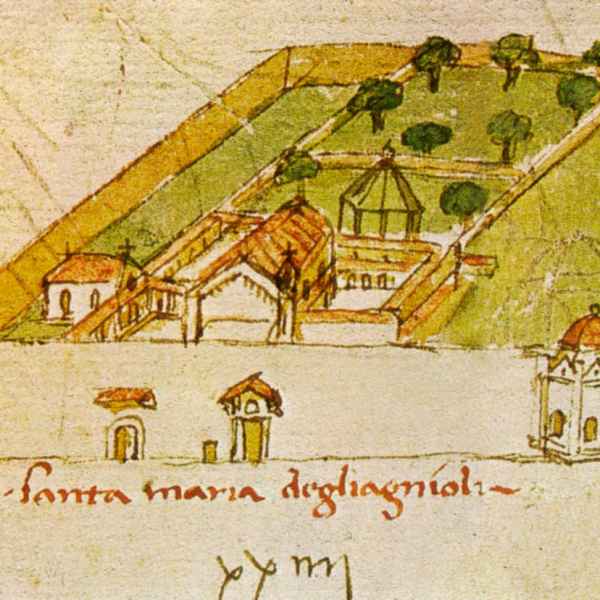 ·santa maria degliagnioli
xxiiij